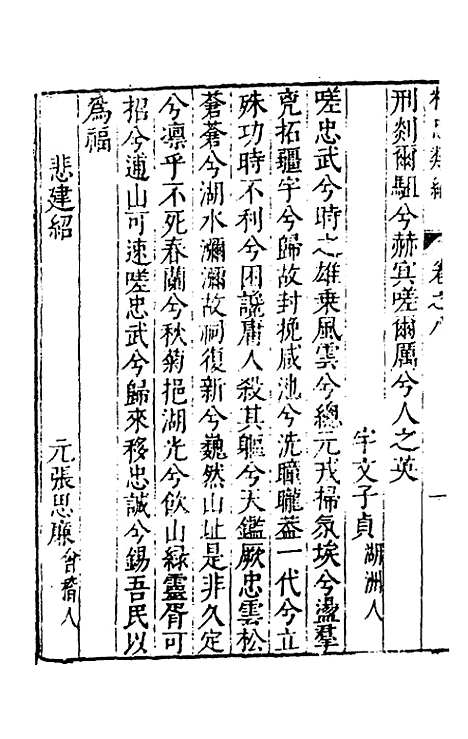 精忠類編 卷之八 一
刑剡爾駔兮赫寅嗟爾厲兮人之英
宇文子貞 湖洲人
嗟忠武兮時之雄乗風雲兮總元戎掃氛埃兮盪羣
兇拓疆宇兮歸故封挽咸池兮洗曈曨葢一代兮立
殊功時不利兮困讒庸人殺其軀兮天鑑厥忠雲松
蒼蒼兮湖水瀰瀰故祠復新兮巍然山址是非久定
兮凛乎不死春蘭兮秋菊挹湖光兮飲山綠靈胥可
招兮逋山可速嗟忠武兮歸來移忠誠兮錫吾民以
爲福
悲建紹 元張思廉 會稽人